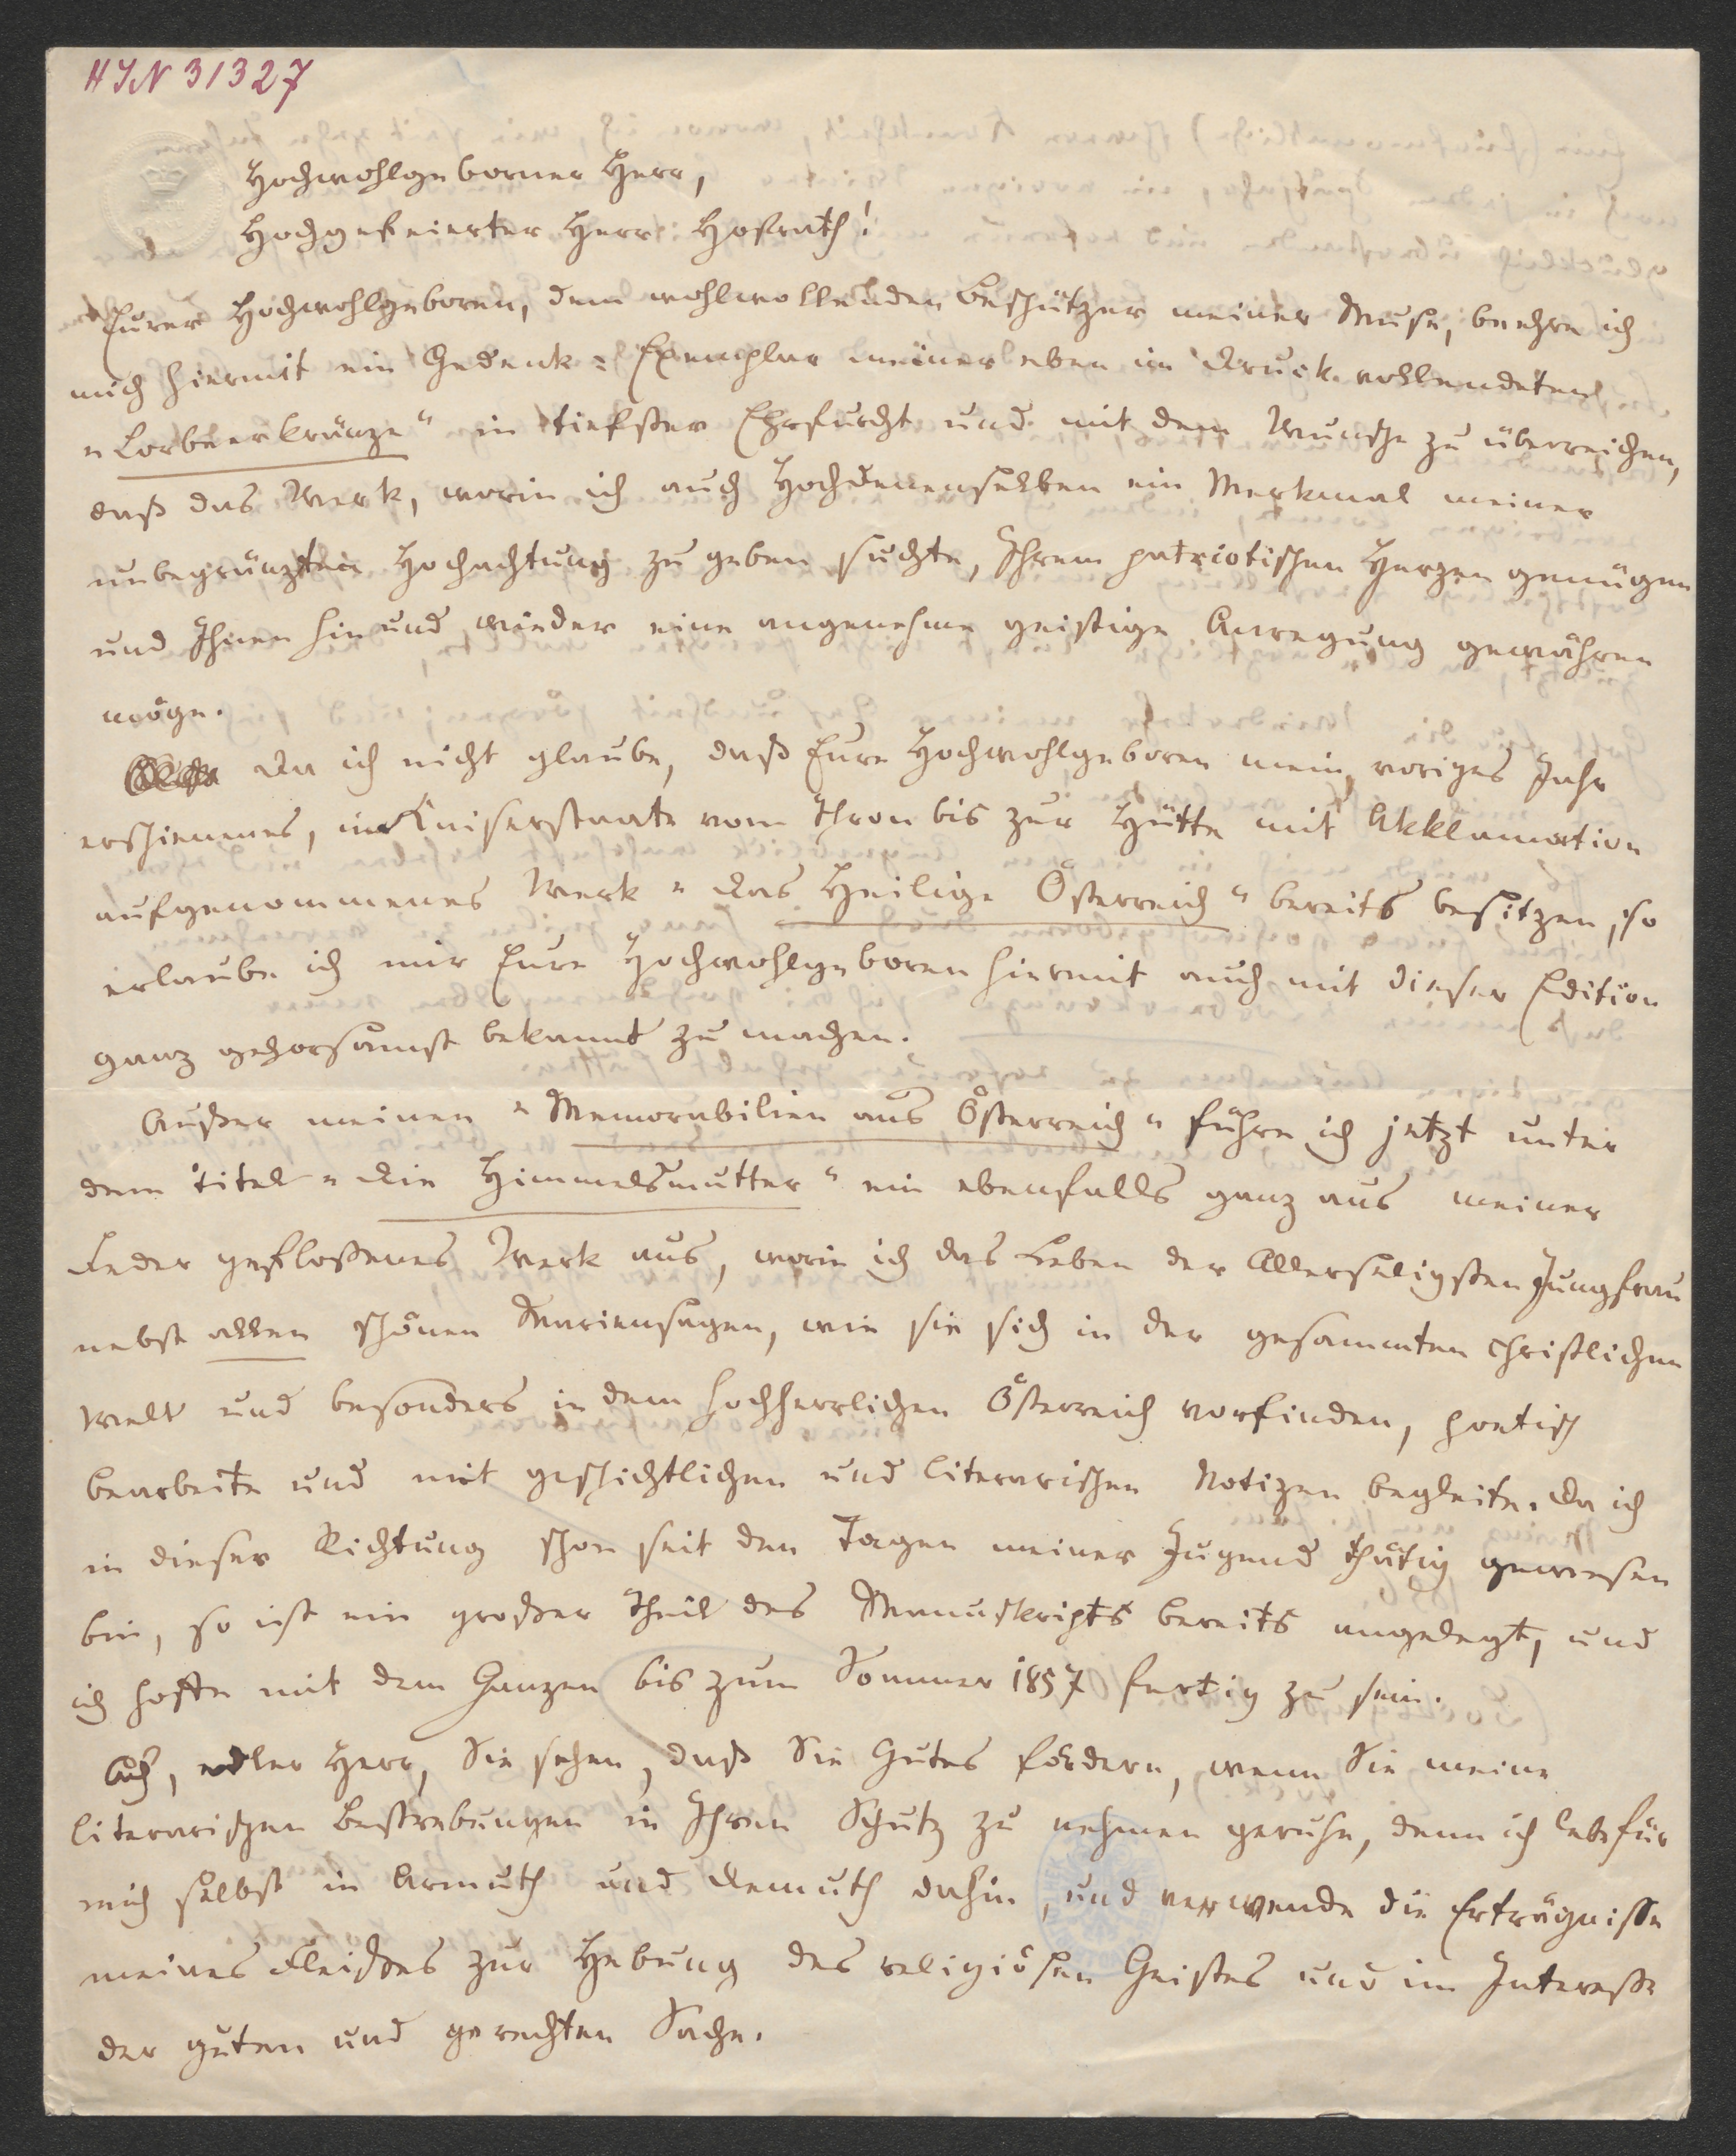 HIN 31327
Hochwohlgeborner Herr,
Hochgefeierter Herr Hofrath!
Eurer Hochwohlgeboren, dem wohlwollenden Beschützer meiner Muse, beehre ich
mich hiermit ein Gedenk=Exemplar meiner eben im Druck vollendeten
„Lorbeerkränze“ in tiefster Ehrfurcht und mit dem Wunsche zu überreichen,
daß das Werk, worin ich auch Hochdenenselben ein Merkmal meiner
unbegränzten Hochachtung zu geben suchte, Ihrem patriotischen Herzen genügen
und Ihnen hin und wieder eine angenehme geistige Anregung gewähren
möge.
Da ich nicht glaube, daß Eure Hochwohlgeboren mein, voriges Jahr
erschienenes, im Kaiserstaate vom Thron bis zur Hütte mit Akklamation
aufgenommenes Werk „Das Heilige Österreich“ bereits besitzen, so
erlaube ich mir Eure Hochwohlgeboren hiermit auch mit dieser Edition
ganz gehorsamst bekannt zu machen.
Außer meinen „Memorabilien aus Österreich“ führe ich jetzt unter
dem Titel „Die Himmelsmutter“ ein ebenfalls ganz aus meiner
Feder geflossenes Werk aus, worin ich das Leben der Allerseligsten Jungfrau
nebst allen schönen Mariensagen, wie sie sich in der gesammten christlichen
Welt und besonders in dem hochherrlichen Österreich vorfinden, poetisch
bearbeite und mit geschichtlichen und literarischen Notizen begleite. Da ich
in dieser Richtung schon seit den Tagen meiner Jugend thätig gewesen
bin, so ist ein großer Theil des Manuskripts bereits angelegt, und
ich hoffe mit dem Ganzen bis zum Sommer 1857 fertig zu sein.
Ach, edler Herr, Sie sehen, daß Sie Gutes fördern, wenn Sie meine
literarischen Bestrebungen in Ihren Schutz zu nehmen geruhe, denn ich lebe für
mich selbst in Armuth und Demuth dahin, und verwende die Erträgnisse
meines Fleißes zur Hebung des religiösen Geistes und im Interesse
der guten und gerechten Sache.